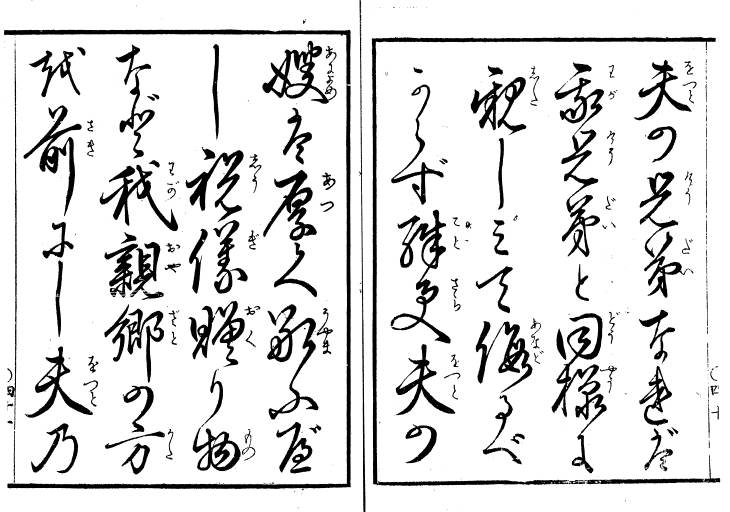 夫の兄弟なれば
我兄弟と同様に
親しミて侮るべ
からず殊更夫の
〇四十
嫂は厚く敬ふべ
し祝儀贈り物
など我親郷の方
を前にし夫乃
〇四十一